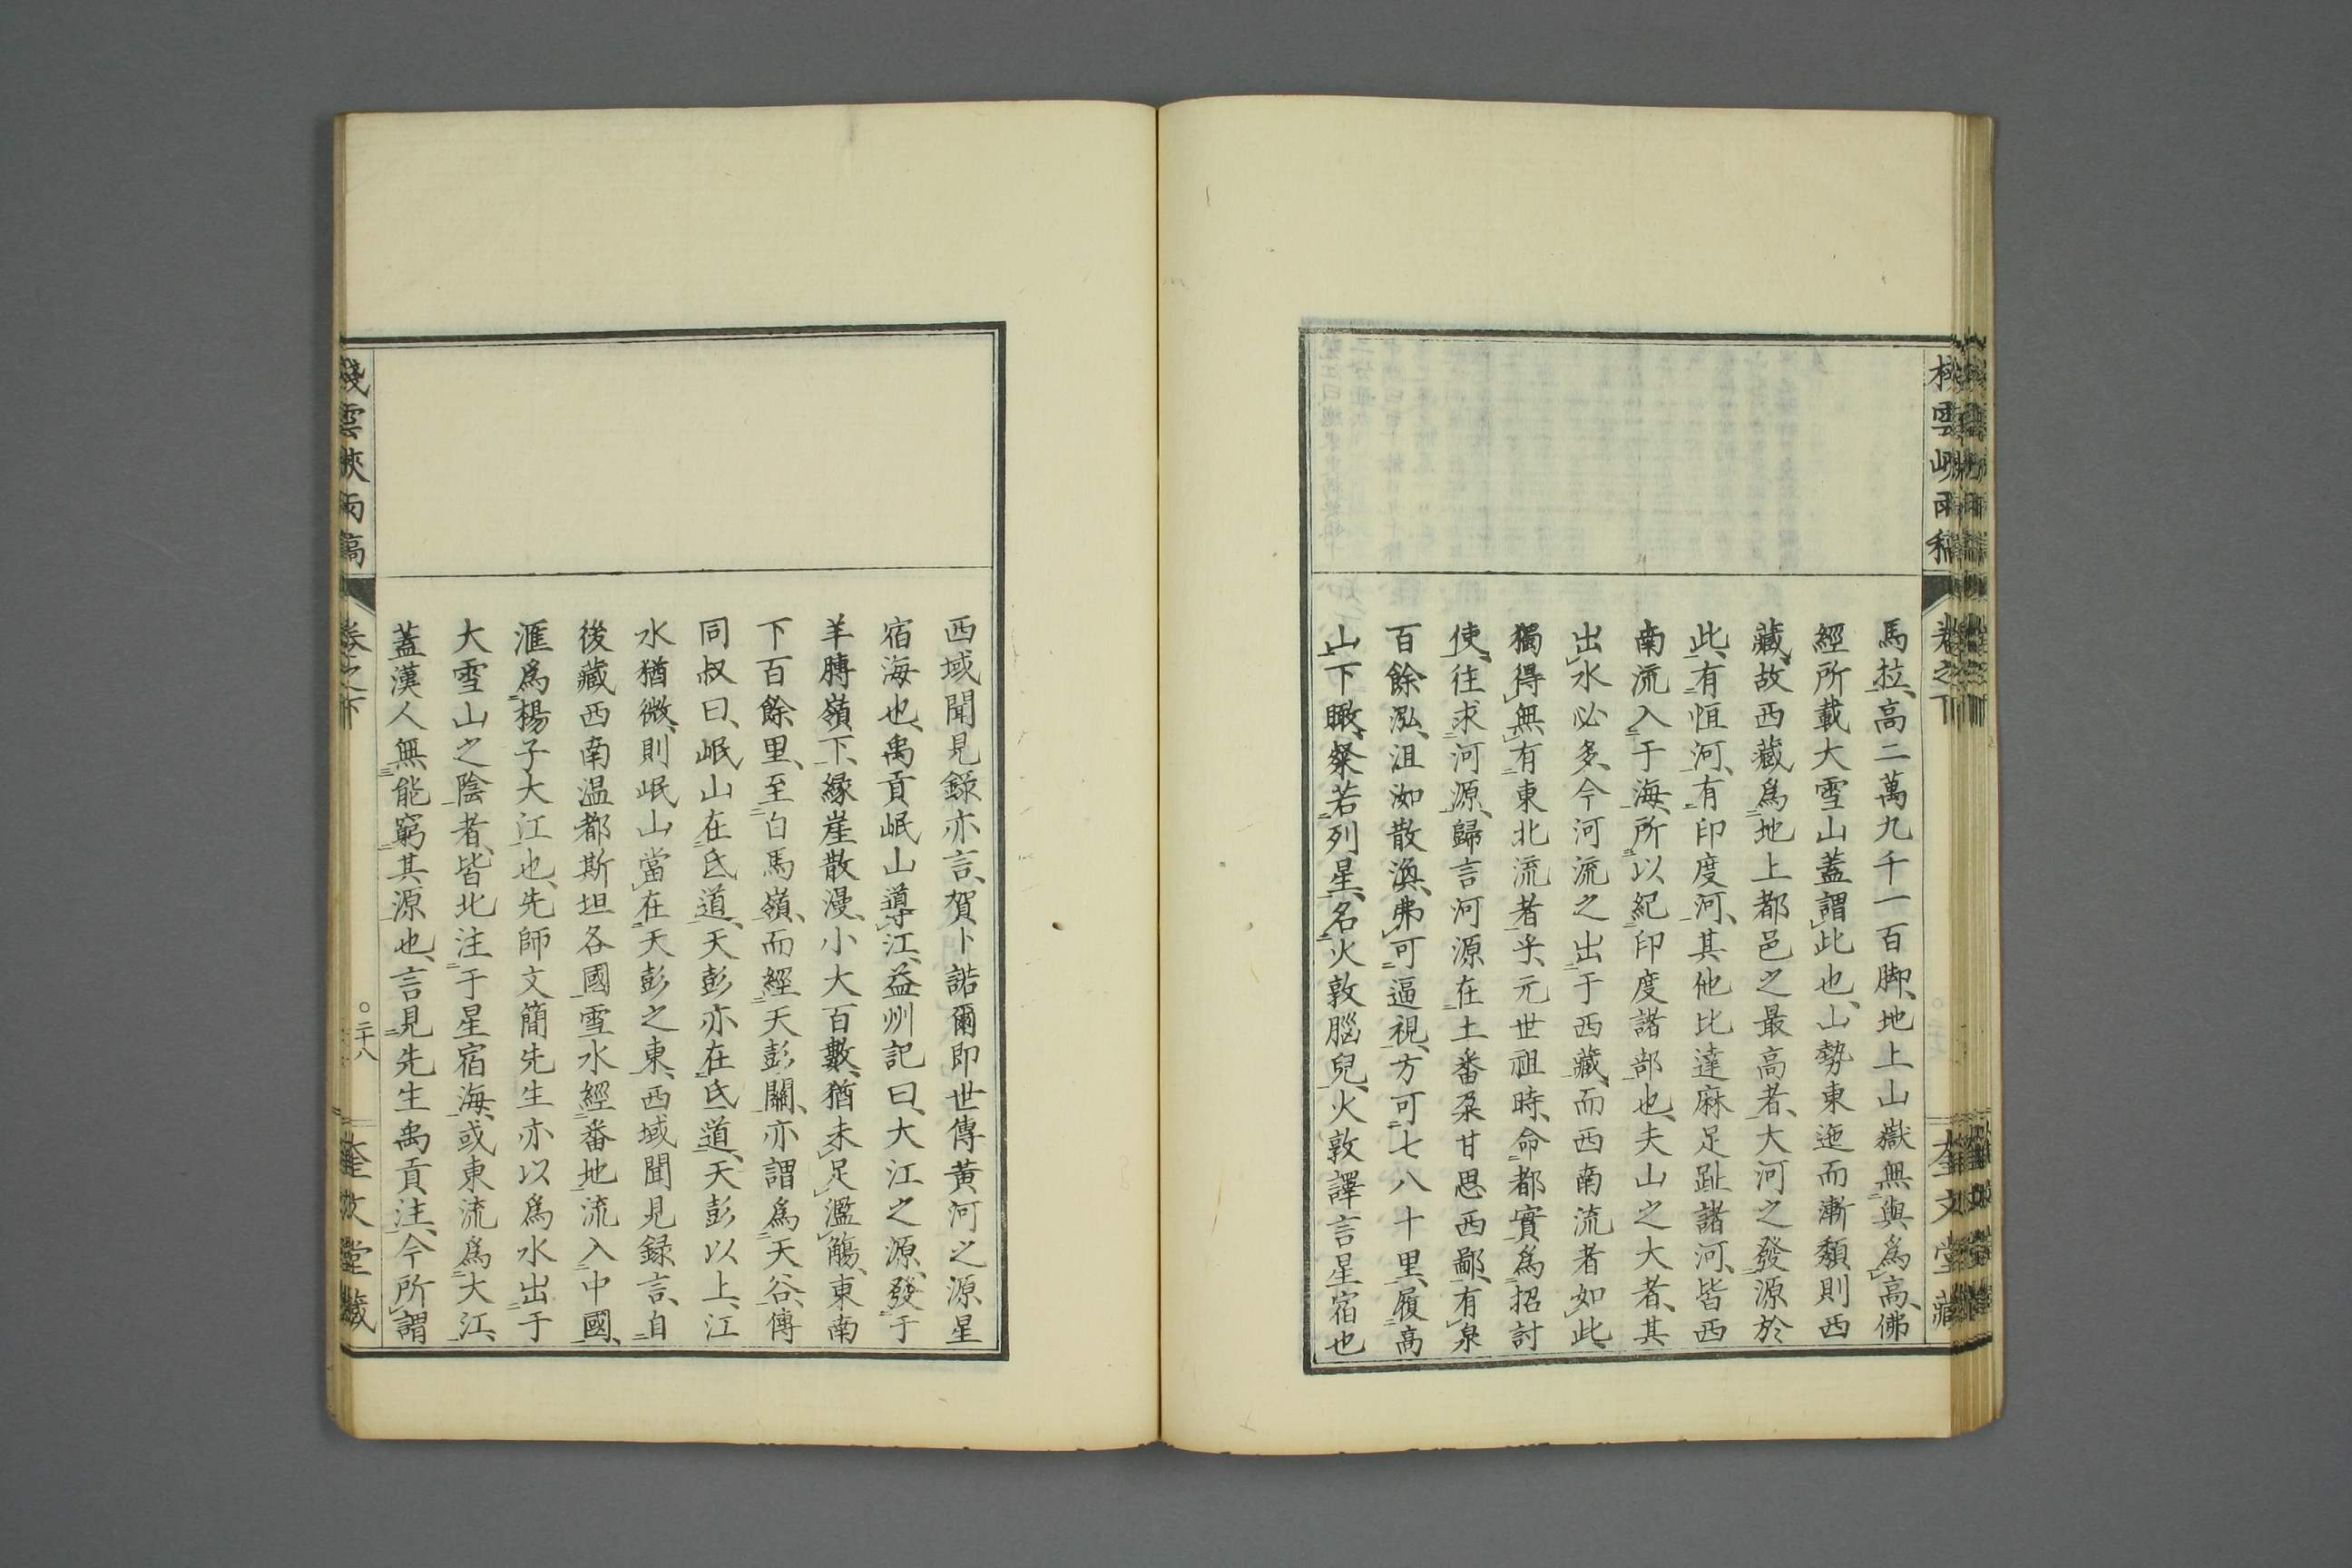 馬拉、高二萬九千一百脚、地上山嶽無與爲高、佛
經所載大雪山蓋謂此也、山勢東迤而漸頽則西
藏、故西藏爲地上都邑之最高者、大河之發源於
此、有恒河、有印度河、其他比達麻足趾諸河、皆西
南流入于海、所以紀印度諸部也、夫山之大者、其
出水必多、今河流之出于西藏、而西南流者如此、
獨得無有東北流者乎、元世祖時、命都實爲招討
使、往求河源、歸言河源在土番朶甘思西鄙、有泉
百餘泓、沮洳散渙、弗可逼視、方可七八十里、履高
山下瞰、粲若列星、名火敦腦兒、火敦譯言星宿也
西域聞見錄亦言、賀卜諾爾即世傳黃河之源、星
宿海也、禹貢岷山導江、益州記曰、大江之源、發于
羊膊嶺下、緣崖散漫、小大百數、猶未足濫觴、東南
下百餘里、至白馬嶺、而經天彭闕、亦謂爲天谷、傳
同叔曰、岷山在氐道、天彭亦在氐道、天彭以上、江
水猶微、則岷山當在天彭之東、西域聞見録言、自
後藏西南温都斯坦各國雪水經番地流入中國、
滙爲楊子大江也、先師文簡先生亦以爲水出于
大雪山之陰者、皆北注于星宿海、或東流爲大江、
蓋漢人無能窮其源也、言見先生禹貢注、今所謂
棧雲峽雨稿
卷之下
二十八
奎文堂藏